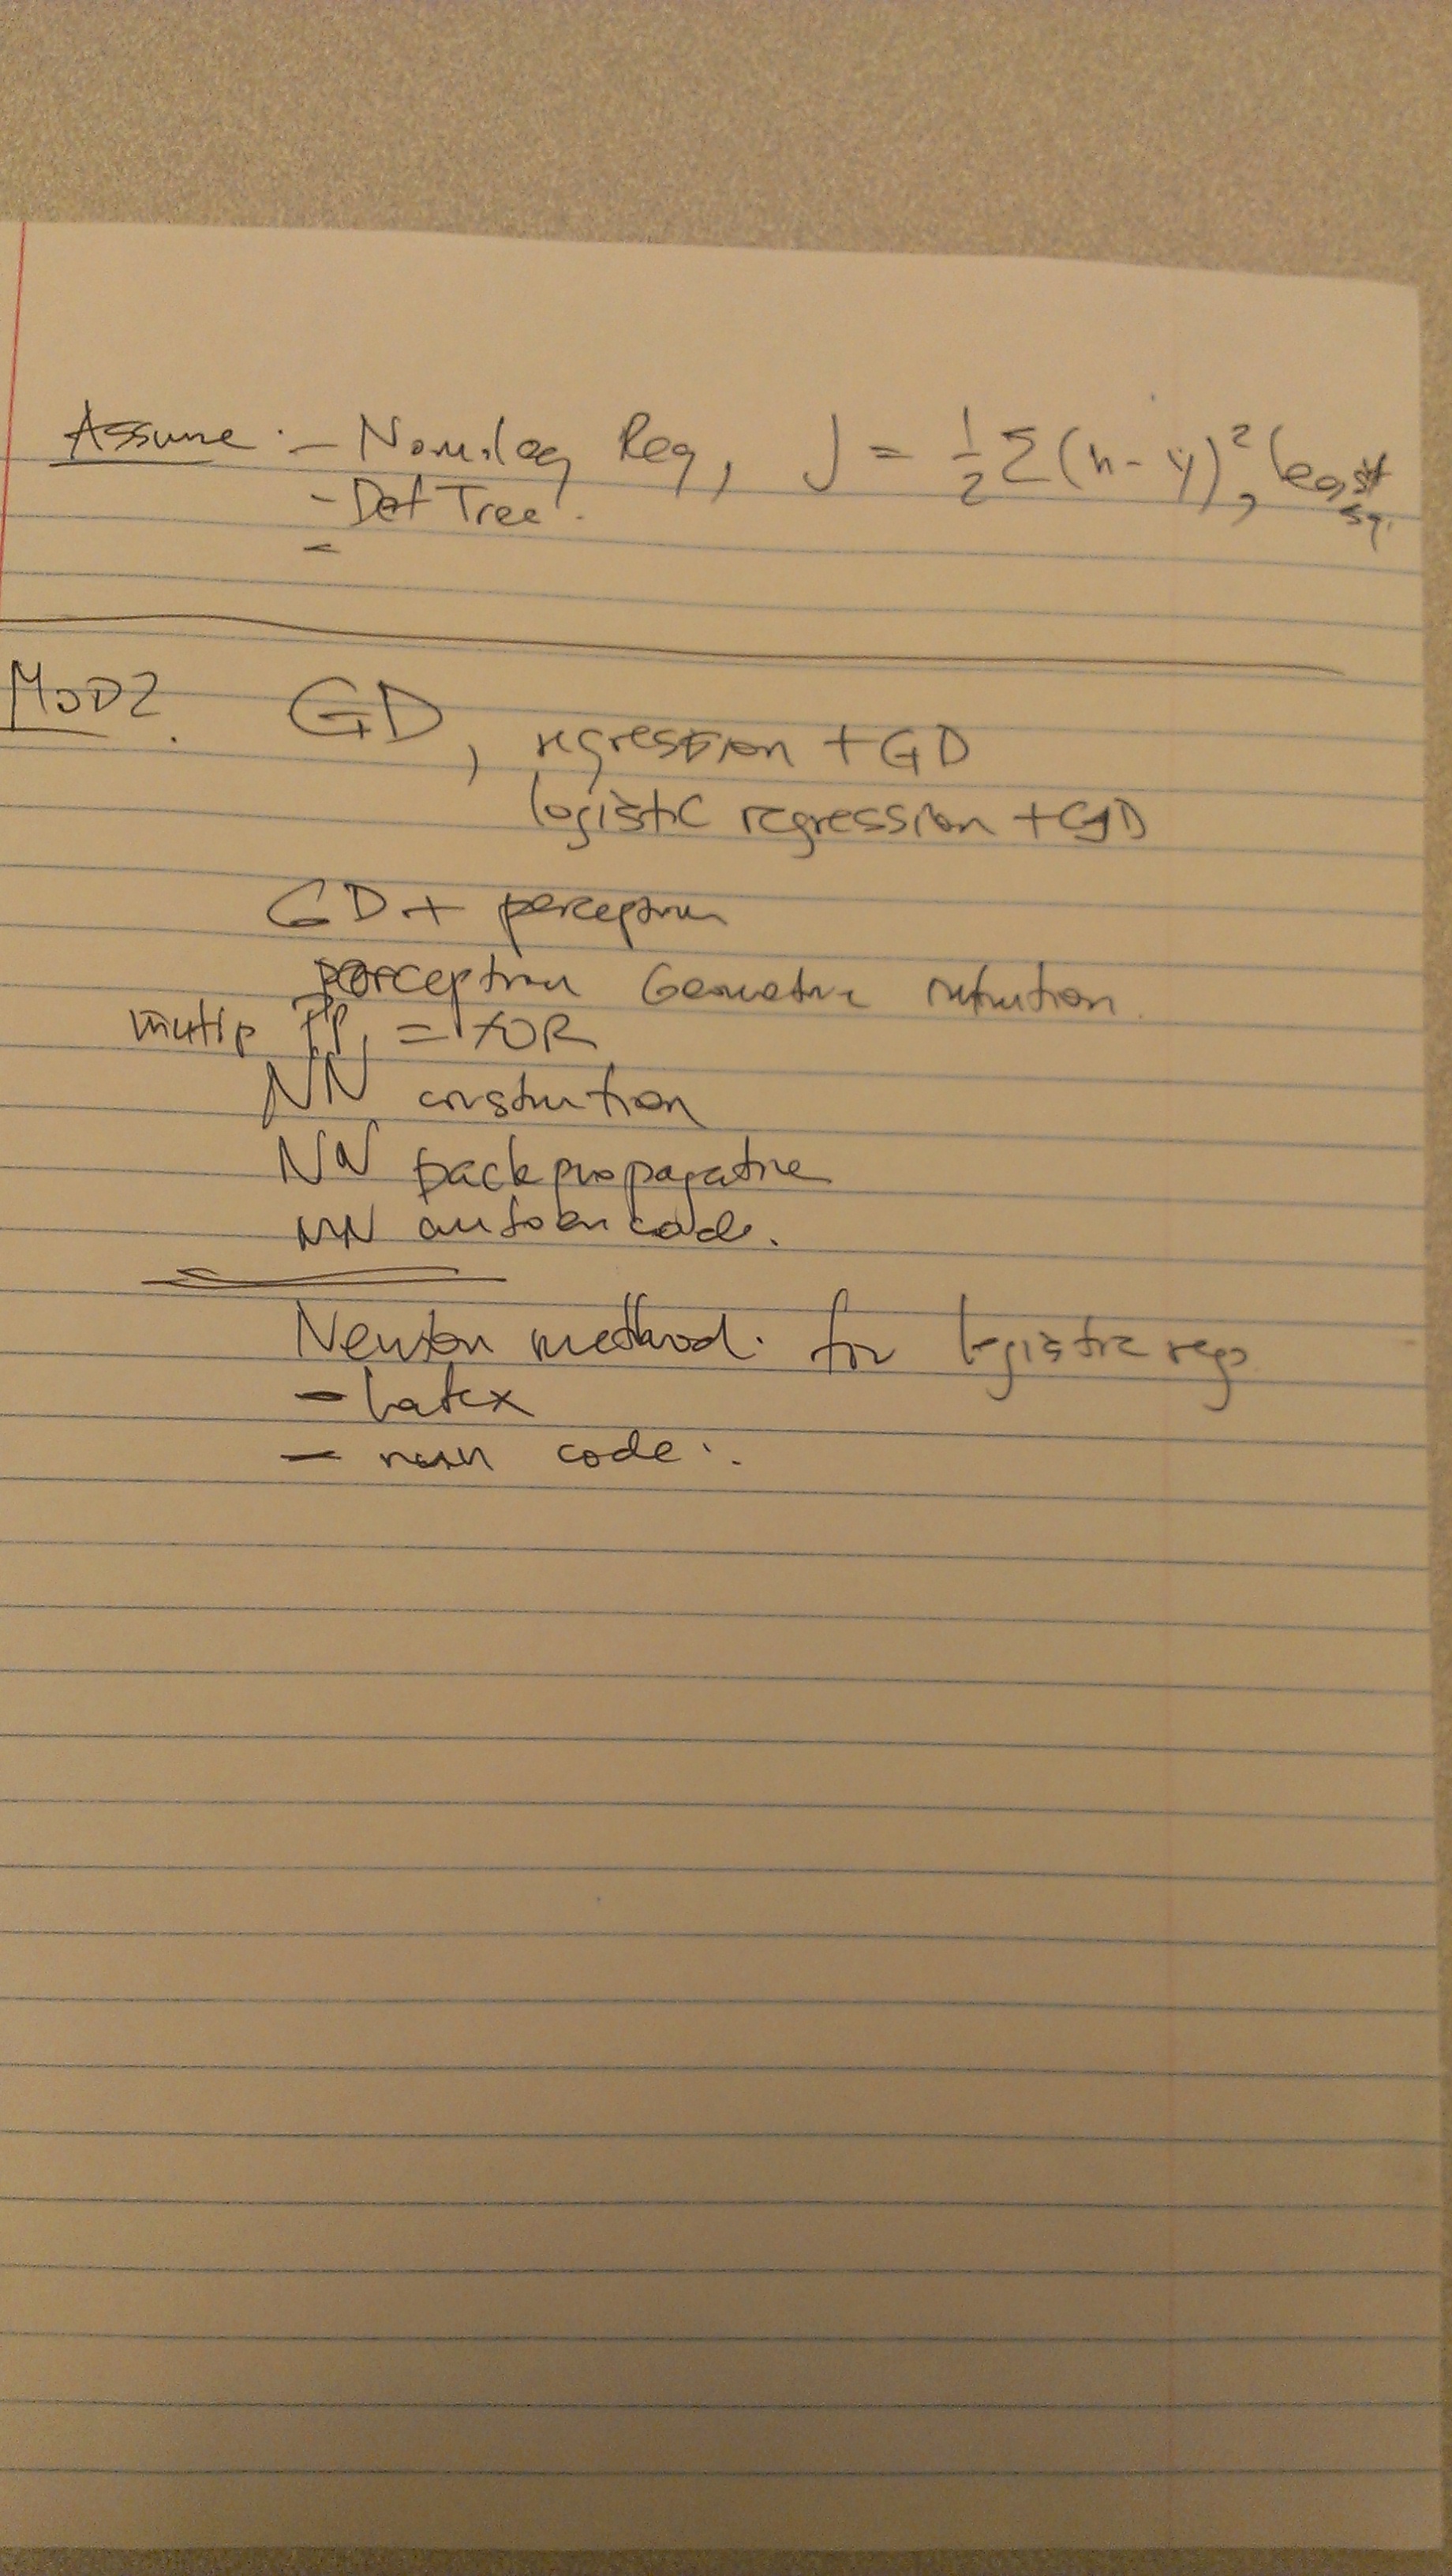 Assume: - Reg, J = 1/2 Σ(h - y)², least sq.
- Tree.
-
MOD2. GD, regression + GD
logistic regression + GD
GD + perceptron
perceptron Geometric intuition
= XOR
NN constrution
NN backpropagation
NN autoencode.
Newton method. for logistic reg
- Latex
- code:.